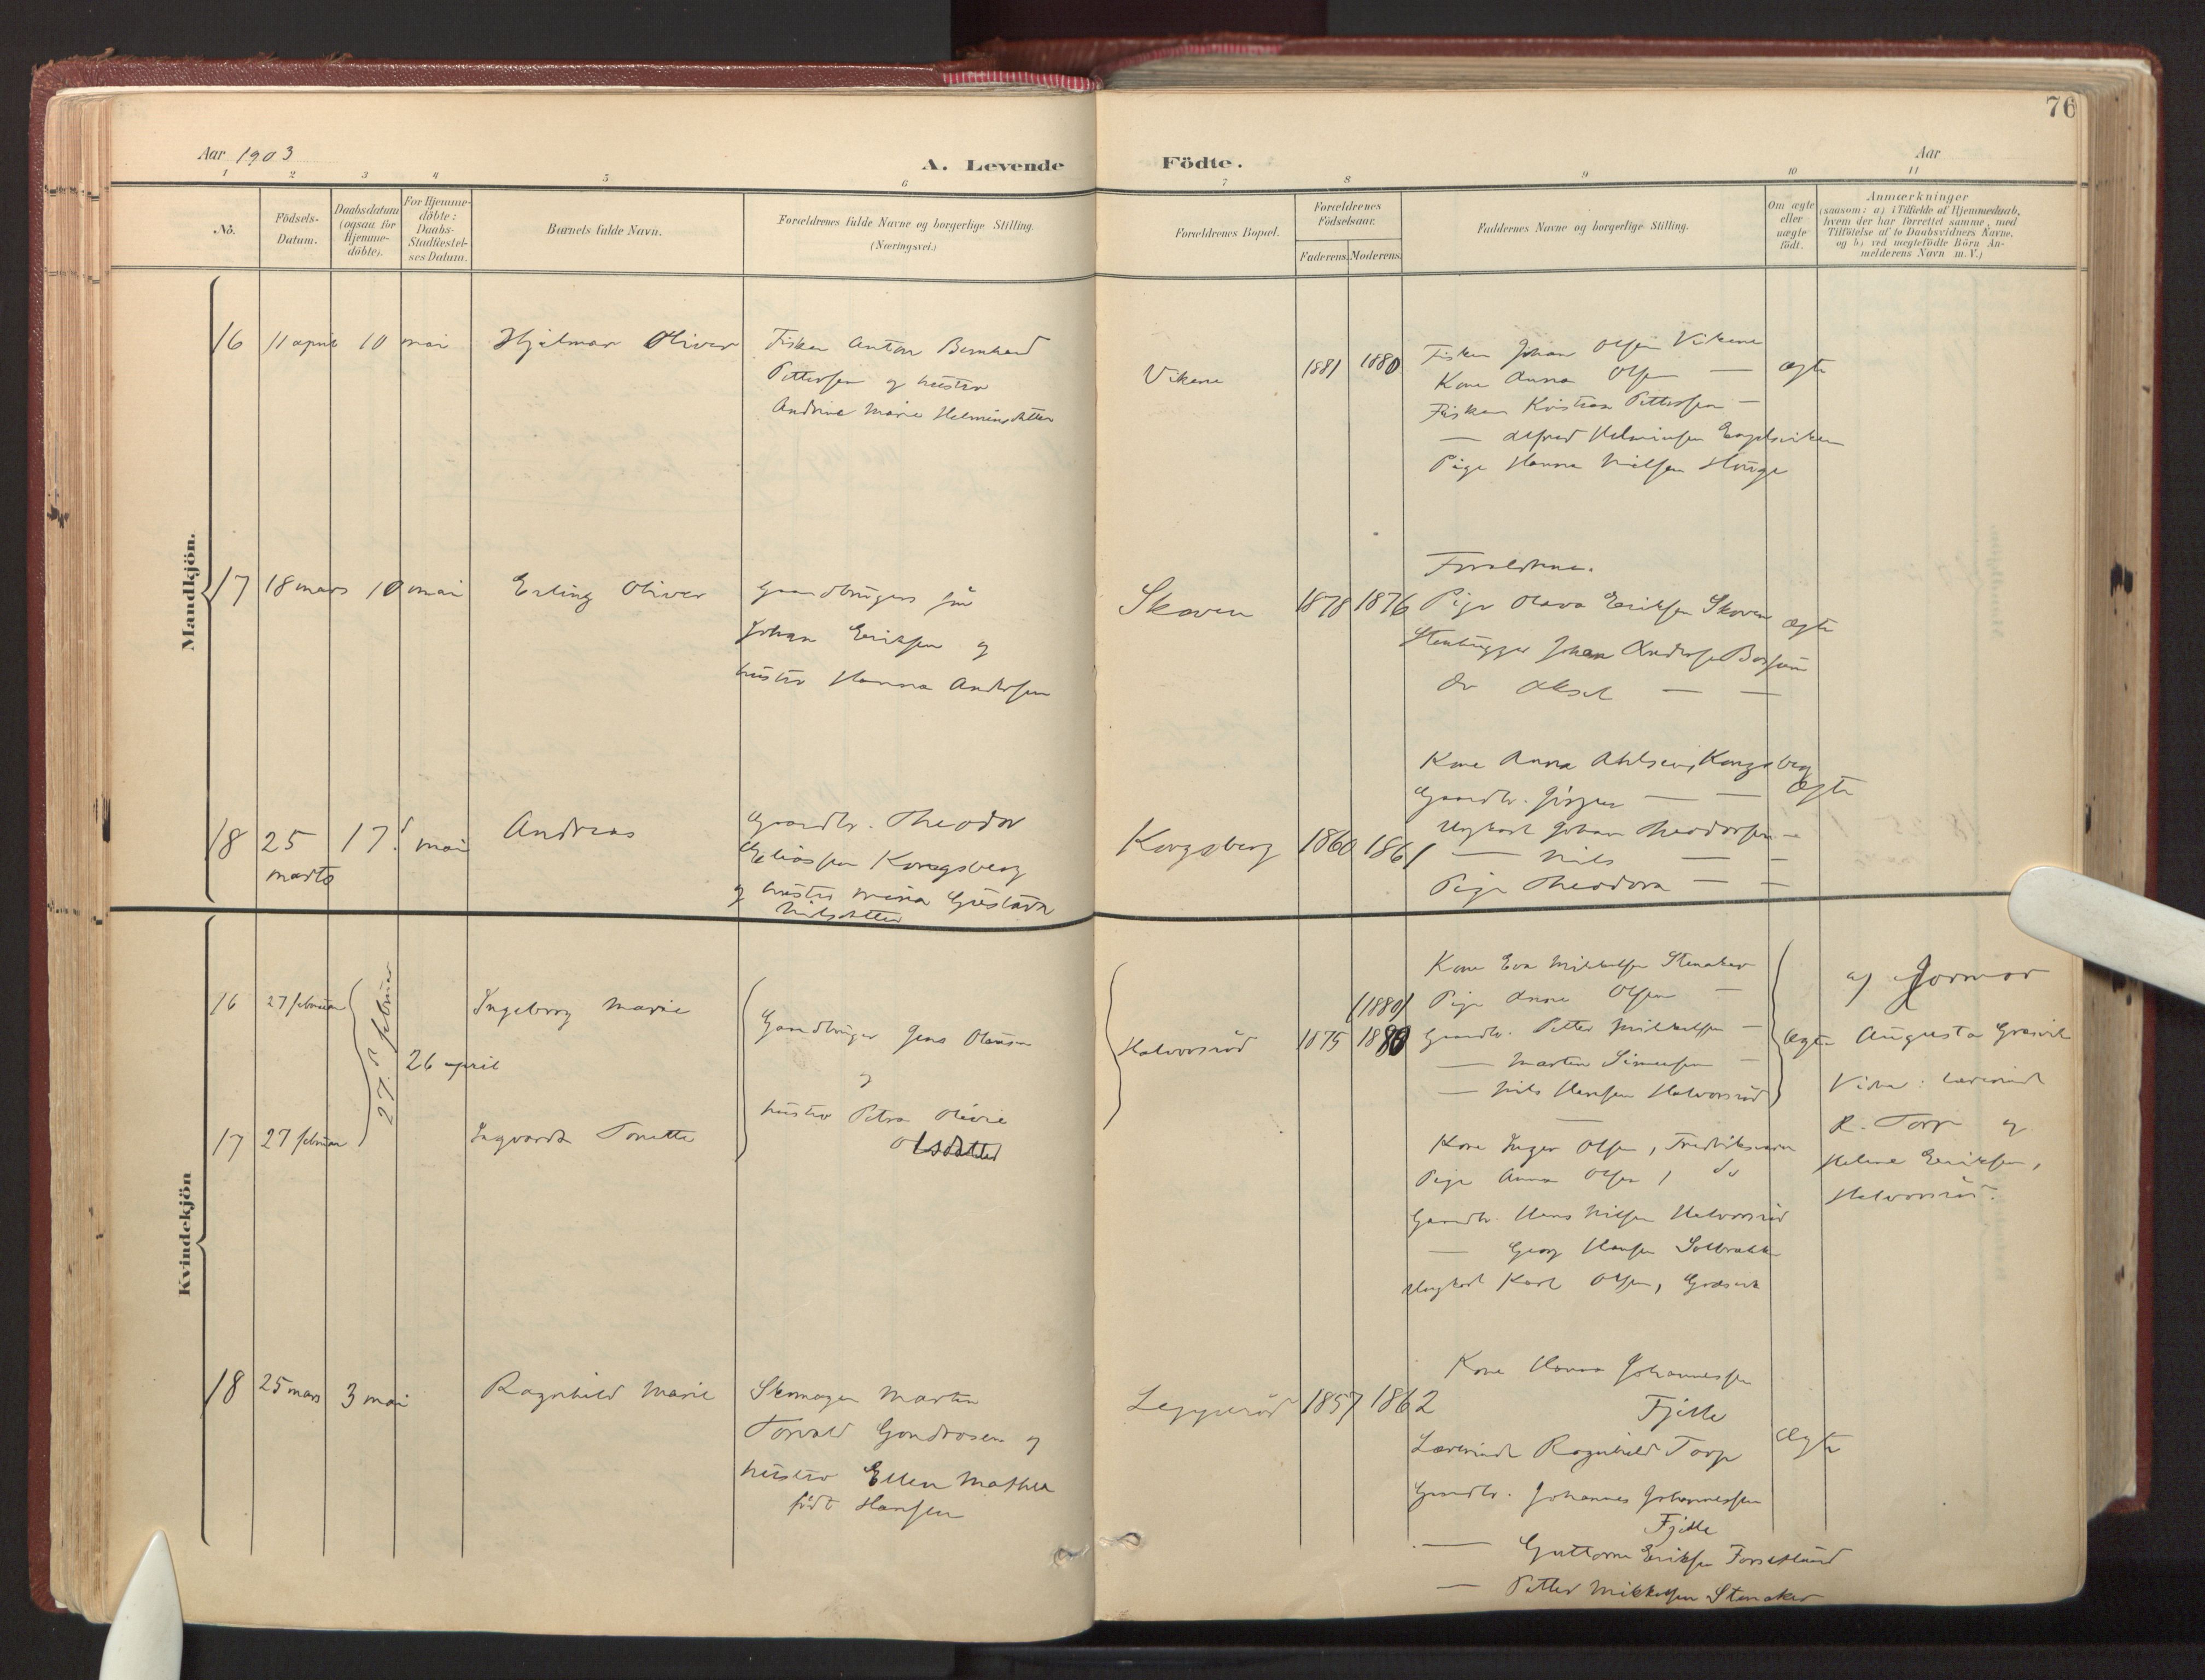 76
Aar 1903
A. Levende Födte.
Aar
1 2 3 4 5 6 7 8 9 10 11
No.
Födsels-Datum.
Daabsdatum (ogsaa for Hjemme-döbte).
For Hjemme-döbte: Daabs-Stadfæstel-ses Datum.
Barnets fulde Navn.
Forældrenes fulde Navne og borgerlige Stilling. (Næringsvei.)
Forældrenes Bopæl.
Forældrenes Födselsaar.
Faderens. Moderens.
Faddernes Navne og borgerlige Stilling.
Om ægte eller uægte födt.
Anmærkninger
(saasom: a) i Tilfælde af Hjemmedaab,
hvem der har forrettet samme, med
Tilföielse af to Daabsvidners Navne,
og b) ved uægtefödte Börn An-
melderens Navn m. V.)
Mandkjön.
16 11 april 10 mai Hjalmar Oliver
Fisker Anton Bernhard
Pettersen og hustru
Andrine Marie Helminsdatter
Vikene 1881 1880
Fisker Johan Olsen Vikene
Kone Anna Olsen —
Fisker Kristian Pettersen —
— Alfred Helminsen Engelsviken
Pige Hanna Nielsen Hauge
ægte
17 18 mars 10 mai Erling Oliver
Gaardbruger
Johan Eriksen og
hustru Hanna Andersen
Skoven 1878 1876
Forældrene.
Pige Olava Eriksen Skoven
Stenhugger Johan Andersen
do Aksel — —
ægte
18 25 marts 17. mai Andreas
Gaardbr. Theodor
Eliassen Kongsberg
og hustru Mina Gustava
Nilsdatter
Kongsberg 1860 1861
Kone Anna Ahlsen, Kongsberg
Gaardbr. Jörgen — —
Ungkarl Johan Theodorsen —
— Nils — —
Pige Theodora — —
ægte
Kvindekjön
16 27 februar
27. februar
26 april
Ingeborg Marie
17 27 februar
Ingvarda Tonette
Gaardbruger Jens Olausen
og
hustru Petra Olivie
Olsdatter
Halvorsröd 1875 (1880) 1880
Kone Eva Mikkelsen Stenaker
Pige Anna Olsen —
Gaardbr. Petter Mikkelsen —
— Martin Simensen —
— Nils Hansen Halvorsröd
—
Kone Inger Olsen, Fredriksværn
Pige Anna Olsen, do
Gaardbr. Hans Nilsen Halvorsröd
— Georg Hansen Solbrække
Ungkarl Karl Olsen, Græsvik
ægte
af Jormor
Augusta Græsvik
Vidner: lærerinde
R. Torp og
Helene Eriksen,
Halvorsröd.
18 25 mars 3 mai Ragnhild Marie
Skomager Martin
Torvald Gondrosen og
hustru Ellen Mathea
född Hansen
1857 1862
Kone Hanna Johannessen
Fjelle
Lærerinde Ragnhild Torp
Gaardbr. Johannes Johannessen
Fjelle
— Guttorm Eriksen
— Petter Mikkelsen Stenaker
ægte